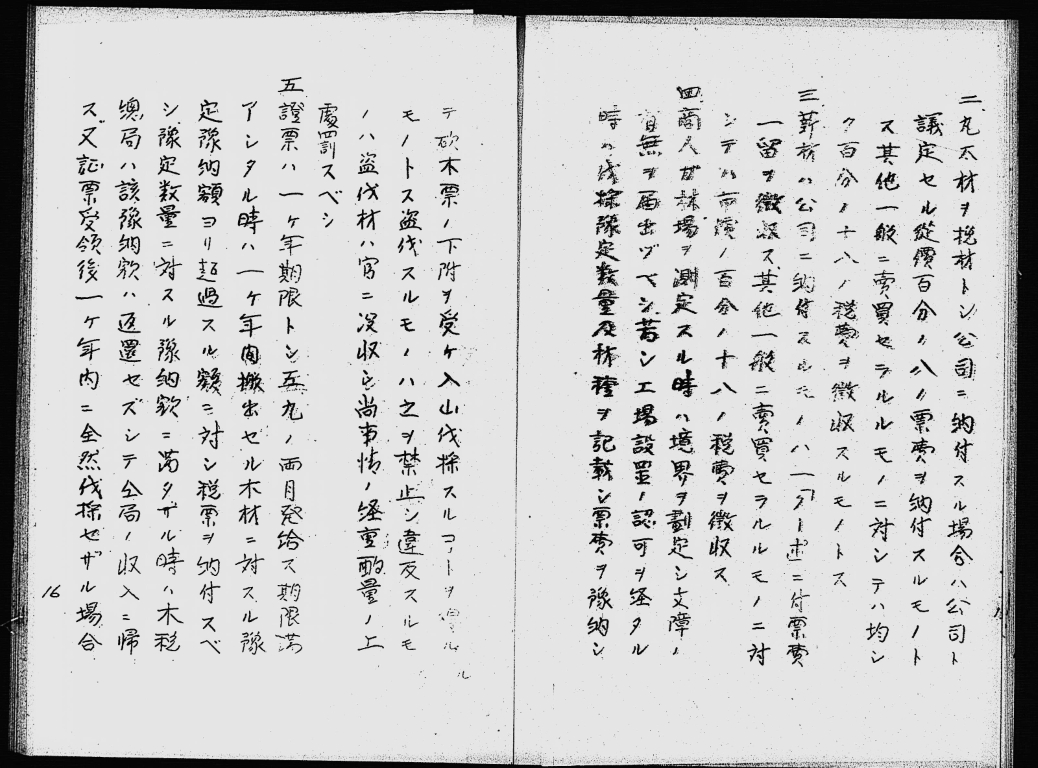 二 丸太材ヲ挽材トシ公司ニ納付スル場合ハ公司ト
議定セル従價百分ノ八ノ票費ヲ納付スルモノト
ス其他一般ニ賣買セラルルモノニ対シテハ均シ
ク百分ノ十八ノ税費ヲ徴収スルモノトス
三 薪材ハ公司ニ納付スルモノハ一「クーポ」ニ付票費
一留ヲ徴収ス其他一般ニ賣買セラルルモノニ対
シテハ市價ノ百分ノ十八ノ税費ヲ徴収ス
四 商人ガ林場ヲ測定スル時ハ境界ヲ劃定シ支障ノ
有無ヲ届出ヅベシ若シ工場設置ノ認可ヲ経タル
時ハ伐採豫定数量及林種ヲ記載シ票費ヲ豫納シ
テ砍木票ノ下附ヲ受ケ入山伐採スルコトヲ得ル
モノトス盗伐スルモノハ之ヲ禁止シ違反スルモ
ノハ盗伐材ハ官ニ没収シ尚事情ノ経重酌量ノ上
處罰スベシ
五 證票ハ一ケ年期限トシ五九ノ両月発給ス期限満
アシタル時ハ一ケ年内搬出セル木材ニ対スル豫
定豫納額ヨリ超過スル額ニ対シ税票ヲ納付スベ
シ豫定数量ニ対スル豫納額ニ満タザル時ハ木税
總局ハ該豫納額ハ返還セズシテ仝局ノ収入ニ帰
ス又証票受領後一ケ年内ニ全然伐採セザル場合
16